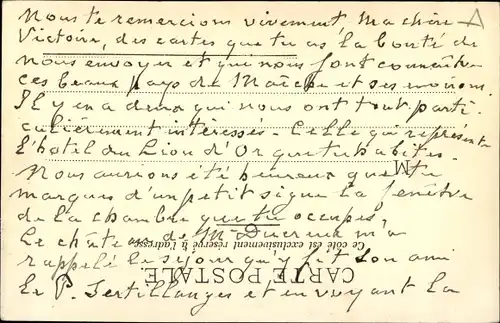 Nous te remercions vivement, Ma chère
Victoire, des cartes que tu as la bonté de
nous envoyer et qui nous font connaître
ces beaux pays de Maîche et ses environs.
Il y en a deux qui nous ont tout parti-
culièrement intéressés. Celle qui représente
l'hôtel du Lion d'Or que tu habites.
Nous aurions été heureux que tu
marques d'un petit signe la fenêtre
de la chambre que tu occupes,
Le château de M. Ducreux m'a
rappelé le séjour qu'y fit son ami
le P. Sertillanges et en voyant la
M
Ce côté est exclusivement réservé à l'adresse
CARTE POSTALE